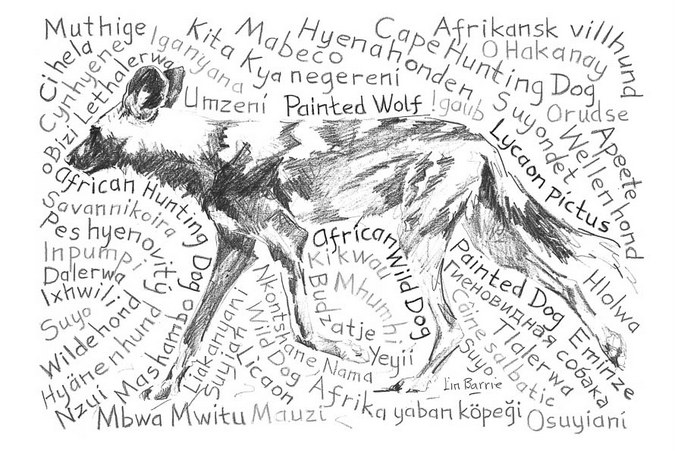 Muthige
Cihela
Cynhyene
o Bizi Lethalerwa
Iganyana
Kita Kya negereni
Mabeco
Hyenahonden
Cape Hunting Dog
Afrikansk villhund
O Hakanay
Orudse
Umzeni
Painted Wolf
!gaub
Suyondet
Wellenhond
Apeete
Lycaon pictus
African Hunting Dog
Savannikoira
Pes hyenovity
Inpumpi
Dalerwa
Ixhwili
Suyo
Wildehond
Hyänenhund
Nzui
Mashambo
African Wild Dog
Ki kwau
Mhumhi
Budzatje
Yeyii
Nkontshane
Nama
Wild Dog
Licaon
Painted Dog
Гиеновидная собака
Câine salbatic
Tlalerwa
Suyo
Hlolwa
Eminze
Lin Barrie
Mbwa Mwitu
Mauzi
Afrika yaban köpeği
Osuyiani